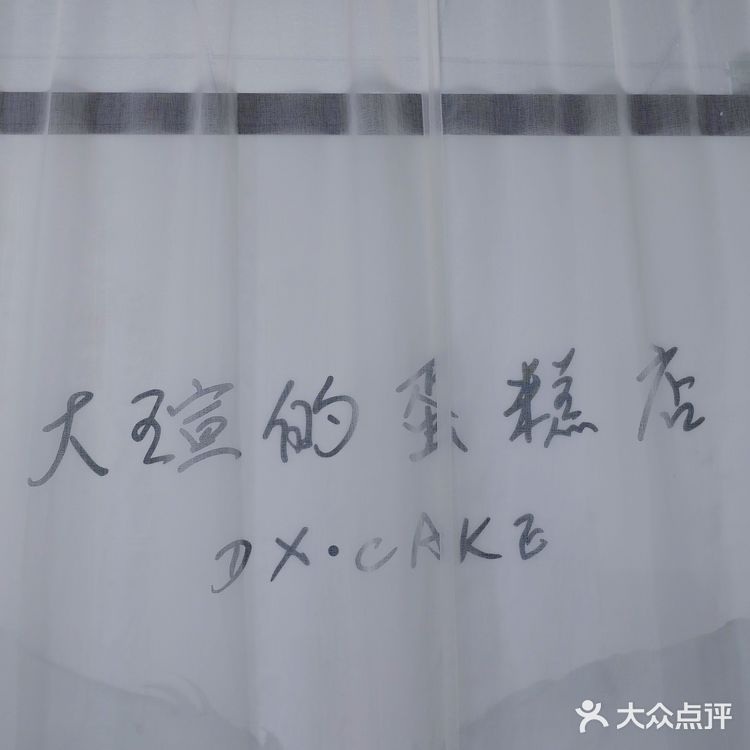 大瑄的蛋糕店
DX·CAKE
大众点评